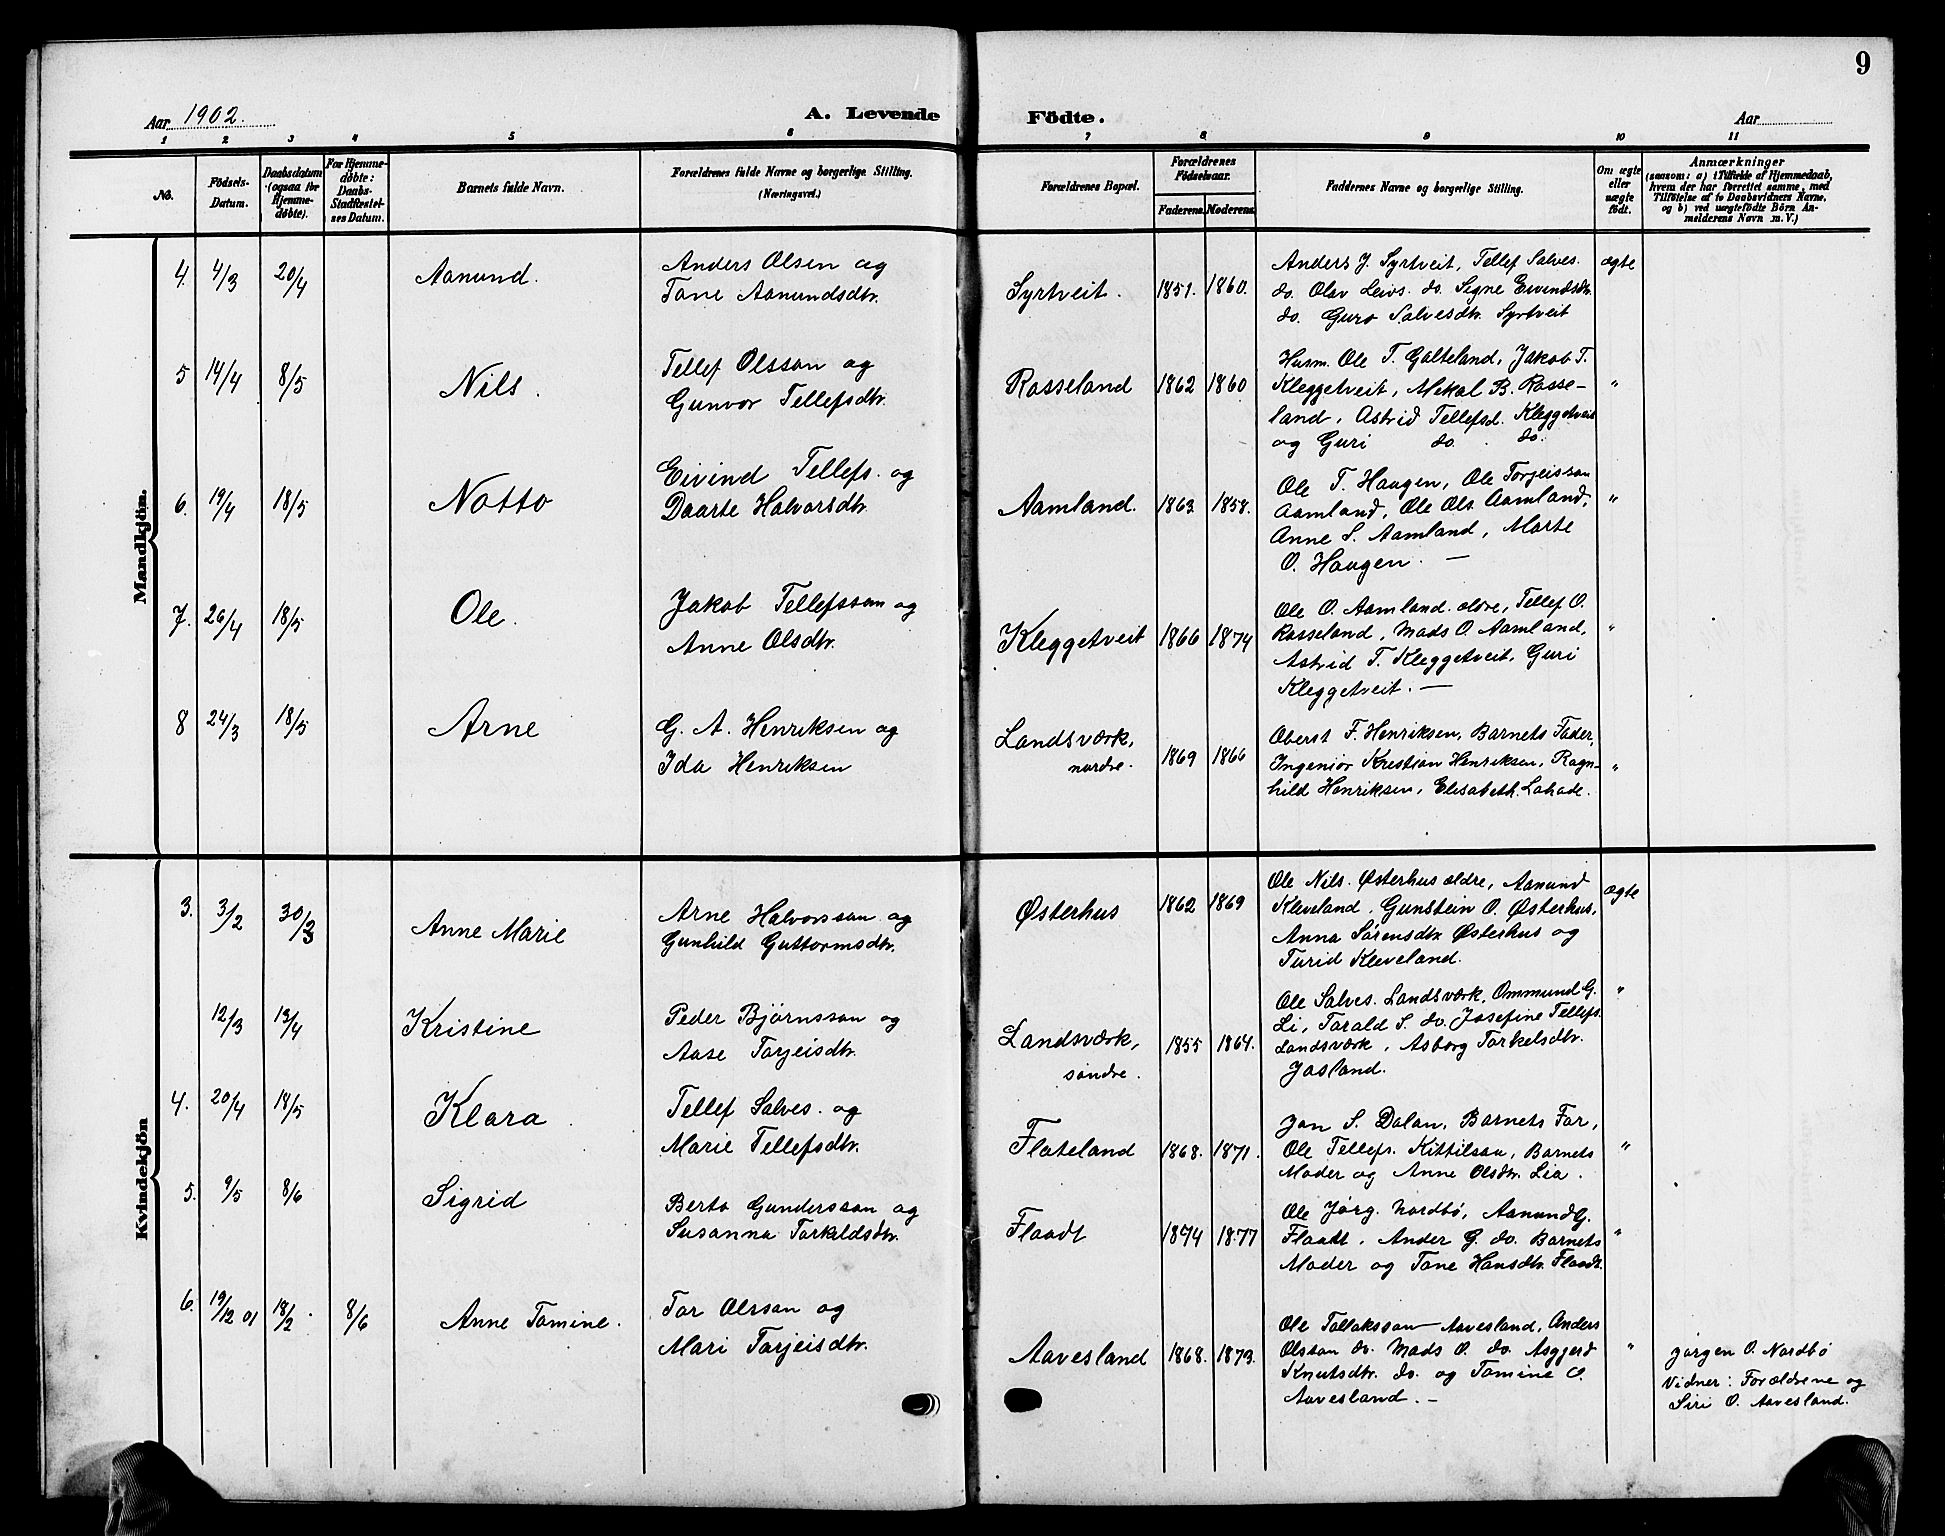 9
Aar 1902. A. Levende Födte. Aar
1 2 3 4 5 6 7 8 9 10 11
No. Födsels-Datum. Daabsdatum (ogsaa for Hjemme-döbte). For Hjemme-döbte: Daabs-Stadfæstel-ses Datum. Barnets fulde Navn. Forældrenes fulde Navne og borgerlige Stilling. (Næringsvei.) Forældrenes Bopæl. Forældrenes Födselsaar. Faderens. Moderens. Faddernes Navne og borgerlige Stilling. Om ægte eller uægte födt. Anmærkninger
(saasom: a) i Tilfælde af Hjemmedaab,
hvem der har forrettet samme, med
Tilföielse af to Daabsvidners Navne,
og b) ved uægtefödte Börn An-
melderens Navn m. V.)
Mandkjön.
4. 4/3 20/4 Aanund. Anders Olsen og
Tone Aanundsdtr. Syrtveit. 1851. 1860. Anders J. Syrtveit, Tellef Salves. ægte
do. Olav Leivs. do. Signe Eivindsdtr.
do. Guro Salvesdtr. Syrtveit
5 14/4 8/5 Nils. Tellef Olsson og
Gunvor Tellefsdtr. Rosseland 1862 1860 Husm. Ole T. Galteland, Jakob T. "
Kleggetveit, Mekal B. Rosse-
land, Astrid Tellefsd. Kleggetveit
og Guri do. do.
6. 19/4 18/5 Notto Eivind Tellefs. og
Daarte Halvorsdtr. Aamland. 1863 1858. Ole T. Haugen, Ole Torjeisson "
Aamland, Ole Ols. Aamland,
Anne S. Aamland, Marte
O. Haugen. —
7. 26/4 18/5 Ole. Jakob Tellefsson og
Anne Olsdtr. Kleggetveit 1866 1874 Ole O. Aamland ældre, Tellef O. "
Rosseland, Mads O. Aamland,
Astrid T. Kleggetveit, Guri
Kleggetveit. —
8 24/3 18/5 Arne G. A. Henriksen og
Ida Henriksen Landsværk, nordre. 1869 1866 Oberst F. Henriksen, Barnets Fader, "
Ingeniør Kristian Henriksen, Ragn-
hild Henriksen, Elisabeth
Kvindekjön
3. 3/2 30/3 Anne Marie Arne Halvorsson og
Gunhild Guttormsdtr. Østerhus 1862 1869 Ole Nils. Østerhus ældre, Aanund ægte
Kleveland, Gunstein O. Østerhus,
Anna Sørensdtr Østerhus og
Turid Kleveland.
12/3 13/4 Kristine Peder Bjørnsson og
Aase Torjeisdtr. Landsværk, søndre. 1855 1864. Ole Salves. Landsværk, Ommund G. "
Li, Torald S. do. Josefine Tellefs.
Landsværk, Asborg Torkelsdtr.
Josland.
4. 20/4 18/5 Klara Tellef Salves. og
Marie Tellefsdtr. Flateland 1868. 1871. Jon S. Dalan, Barnets Far, "
Ole Tellefs. Kittilsan, Barnets
Moder og Anne Olsdtr. Lia.
5. 9/5 8/6 Sigrid Berto Gundersson og
Susanna Torkeldsdtr. Flaadt 1874 1877 Ole Jørg. Nordbø, Aanund G. "
Flaadt, Ander G. do. Barnets
Moder og Tone Hansdtr. Flaadt.
6. 19/12 01 18/2 8/6 Anne Tomine. Tor Olsson og
Mari Torjeisdtr. Aavesland 1868. 1873. Ole Tollaksson Aavesland, Anders "
Olsson do. Mads O. do. Asgjerd
Knutsdtr. do. og Tomine O.
Aavesland. —
Jørgen O. Nordbø
Vidner: Forældrene og
Siri O. Aavesland.